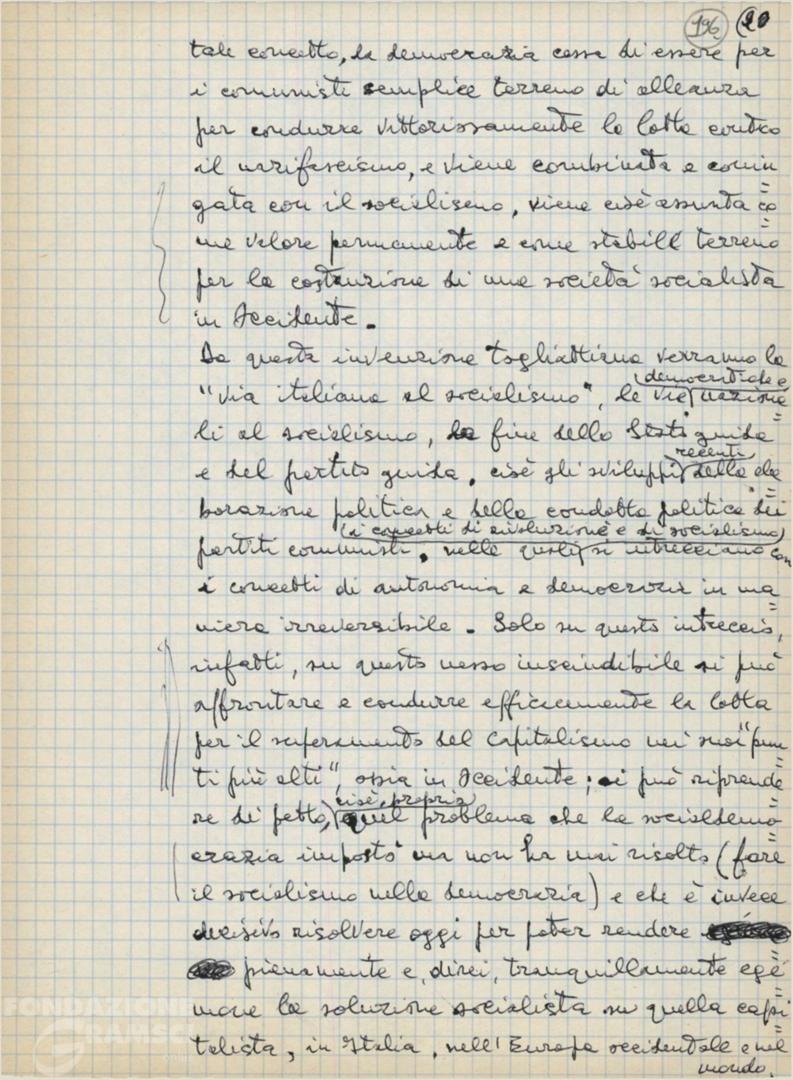 196 20
tale concetto, la democrazia cessa di essere per
i comunisti semplice terreno di alleanza
per condurre vittoriosamente la lotta contro
il nazifascismo, e viene combinata e coniu=
gata con il socialismo, viene cioè assunta co=
me valore permanente e come stabile terreno
per la costruzione di una società socialista
in Occidente.
Da questa invenzione togliattiana verranno la
democratiche e
"via italiana al socialismo", le vie naziona=
li al socialismo, la fine dello Stato guida
recenti
e del partito guida, cioè gli sviluppi della ela=
borazione politica e della condotta politica dei
i concetti di rivoluzione e di socialismo
partiti comunisti, nelle quali si intrecciano con
i concetti di autonomia e democrazia in ma=
niera irreversibile. Solo su questo intreccio,
infatti, su questo nesso inscindibile si può
affrontare e condurre efficacemente la lotta
per il superamento del capitalismo nei suoi "pun=
ti più alti", ossia in Occidente; si può riprende=
cioè, proprio
re di petto, quel problema che la socialdemo=
crazia impostò ma non ha mai risolto (fare
il socialismo nella democrazia) e che è invece
decisivo risolvere oggi per poter rendere
pienamente e, direi, tranquillamente ege=
mone la soluzione socialista su quella capi=
talista, in Italia, nell'Europa occidentale e nel
mondo.
FONDAZIONE
GRAMSCI